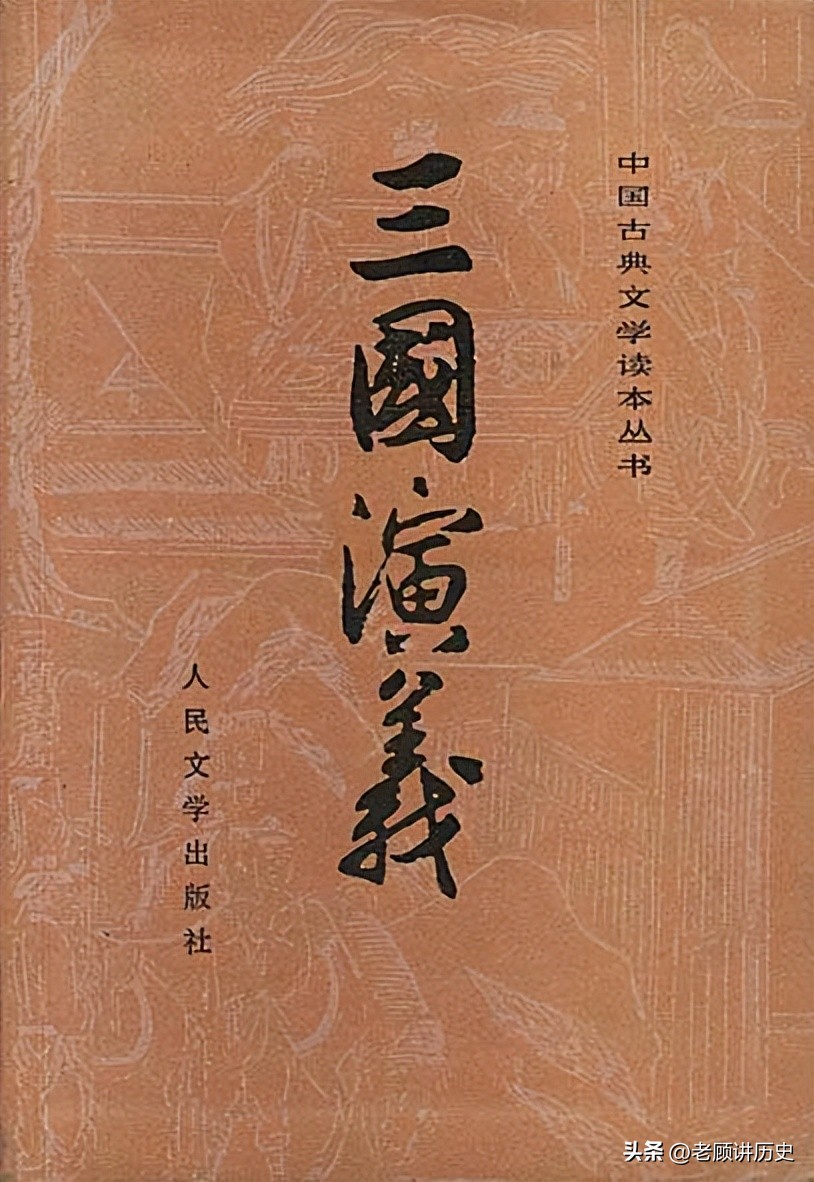 中国古典文学读本丛书
三國演義
人民文学出版社
头条 @老顾讲历史